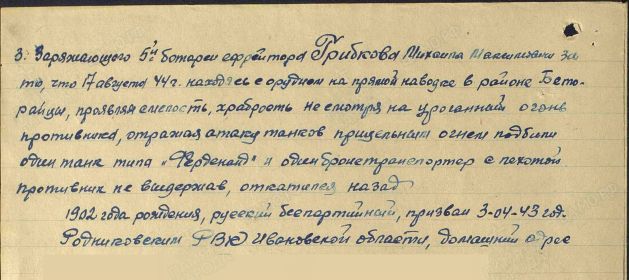 3. Заряжающего 5й батареи ефрейтора Грибкова Михаила Максимовича за
то, что 17 августа 44 г. находясь с орудием на прямой наводке в районе Бето-
райцы, проявляя смелость, храбрость не смотря на ураганный огонь
противника, отражая атаку танков прицельным огнем подбили
один танк типа "Ферденанд" и один бронетранспортер с пехотой
противник не выдержав, откатился назад
1902 года рождения, русский беспартийный, призван 3-04-43 год.
Родниковским РВК Ивановской области, домашний адрес